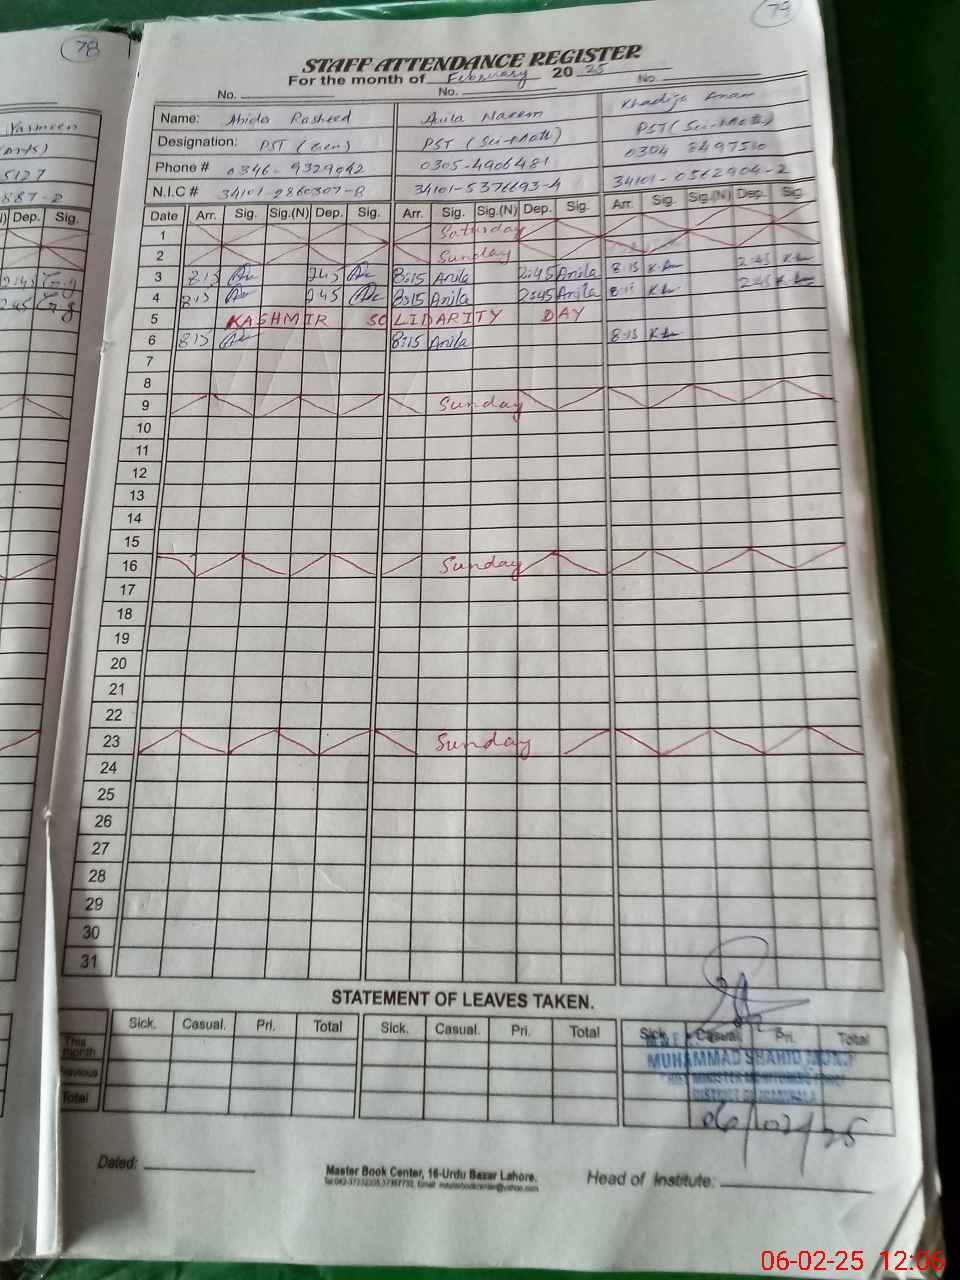 78
79
STAFF ATTENDANCE REGISTER
For the month of February 2025
No. No. No.
Name: Abida Rasheed Anila Naeem Khadija
Designation: PST (Gen) PST (Sci-Math) PST (Sci-Math)
Phone # 0346-9329042 0305-4906481 0304
N.I.C # 34101-9860307-8 34101-5376693-4 34101-0562904-2
Yasmeen
5127
887-2
Dep. Sig.
Date Arr. Sig. Sig.(N) Dep. Sig. Arr. Sig. Sig.(N) Dep. Sig. Arr. Sig. Sig.(N) Dep. Sig.
1 Saturday
2 Sunday
3 8:15 2:45 8:15 Anila 2:45 Anila 8:15 2:45
4 8:15 2:45 8:15 Anila 2:45 Anila 8:15 2:45
5 KASHMIR SOLIDARITY DAY
6 8:15 8:15 Anila 8:15
7
8
9 Sunday
10
11
12
13
14
15
16 Sunday
17
18
19
20
21
22
23 Sunday
24
25
26
27
28
29
30
31
STATEMENT OF LEAVES TAKEN.
Sick. Casual. Pri. Total Sick. Casual. Pri. Total Sick. Casual. Pri. Total
This month
Previous
Total
MUHAMMAD SHAHID
06/02/25
Dated:
Master Book Center, 16-Urdu Bazar Lahore.
Head of Institute:
06-02-25 12:06